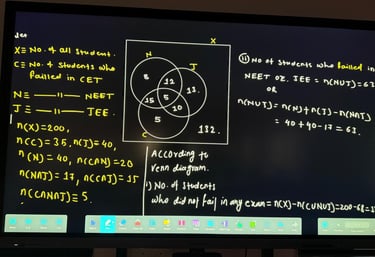 Let
X ≡ No. of all student.
C ≡ No. of students who
Failled in CET
N ≡ —— 11 —— NEET
J ≡ —— 11 —— JEE.
n(X)=200,
n(C)= 35, n(J)= 40,
n(N)= 40, n(C∩N)=20
n(N∩J)= 17, n(C∩J)= 15
n(C∩N∩J)= 5.
X
N
J
8
12
13.
5
15
10
5
C
132.
According to
venn diagram.
i) No. of students
who did not fail in any exam = n(X)-n(CUNUJ)=200-68=
ii) No of students who failled in
NEET OR JEE = n(NUJ)=63
OR
n(NUJ)= n(N)+n(J)-n(N∩J)
= 40+40-17 = 63.